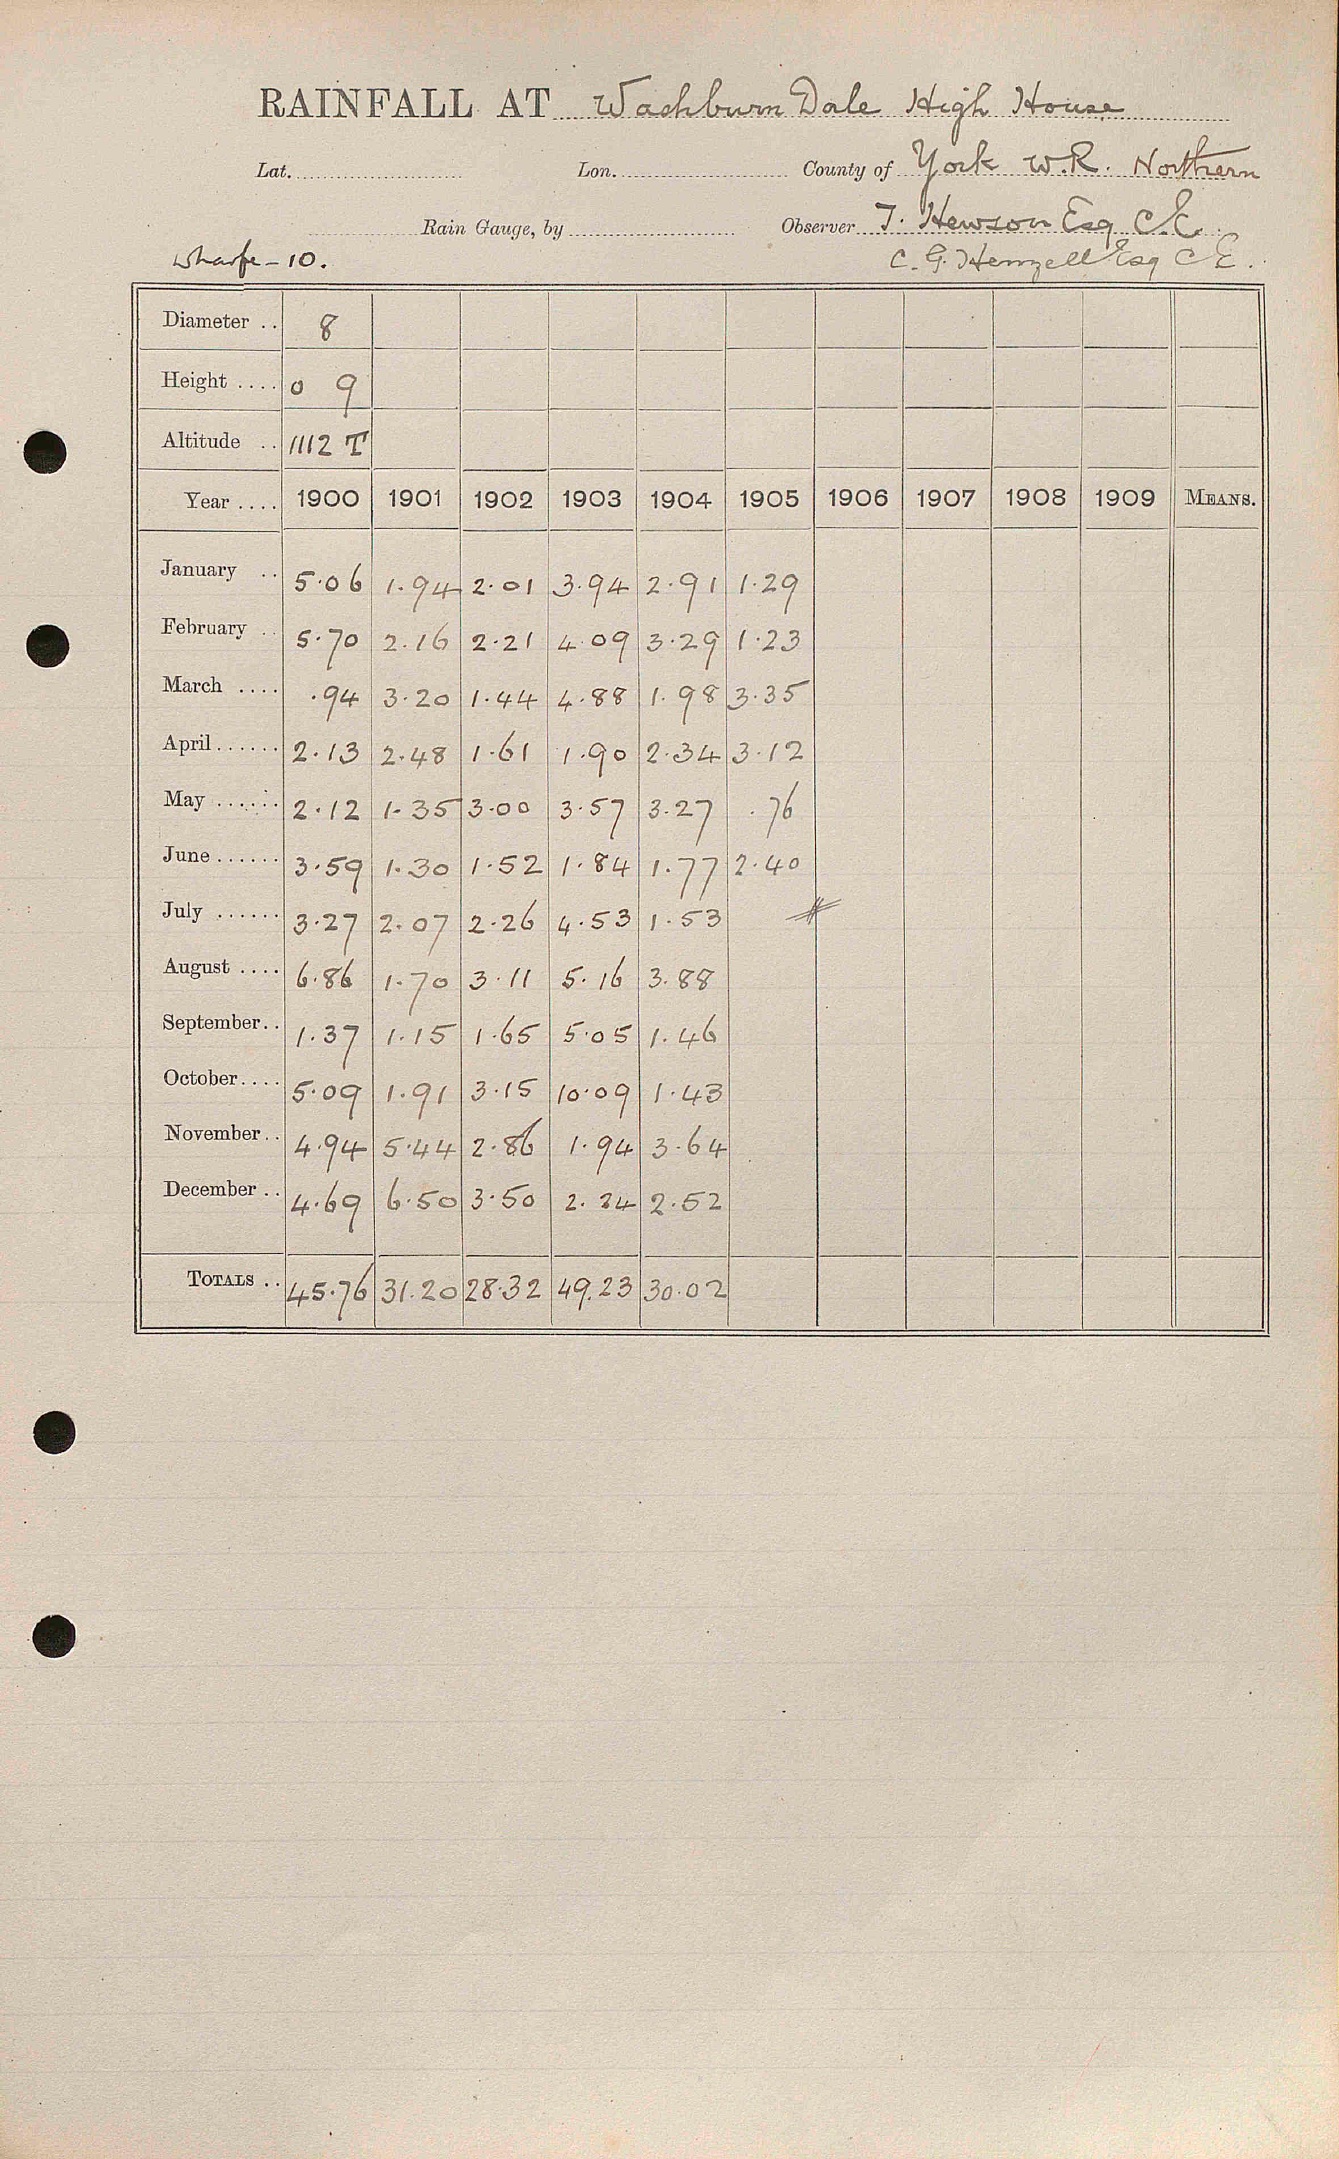 RAINFALL AT Washburn Dale High House
Lat. Lon. County of York W.R. Northern
Rain Gauge, by Observer T. Hewson Esq C.E.
Wharfe - 10. C. G. Henzell Esq C E.
Diameter .. 8
Height .... 0 9
Altitude .. 1112 T
Year .... 1900 1901 1902 1903 1904 1905 1906 1907 1908 1909 MEANS.
January .. 5.06 1.94 2.01 3.94 2.91 1.29
February .. 5.70 2.16 2.21 4.09 3.29 1.23
March .... .94 3.20 1.44 4.88 1.98 3.35
April ...... 2.13 2.48 1.61 1.90 2.34 3.12
May ...... 2.12 1.35 3.00 3.57 3.27 .76
June ...... 3.59 1.30 1.52 1.84 1.77 2.40
July ...... 3.27 2.07 2.26 4.53 1.53
August .... 6.86 1.70 3.11 5.16 3.88
September .. 1.37 1.15 1.65 5.05 1.46
October .... 5.09 1.91 3.15 10.09 1.43
November .. 4.94 5.44 2.86 1.94 3.64
December .. 4.69 6.50 3.50 2.24 2.52
TOTALS .. 45.76 31.20 28.32 49.23 30.02